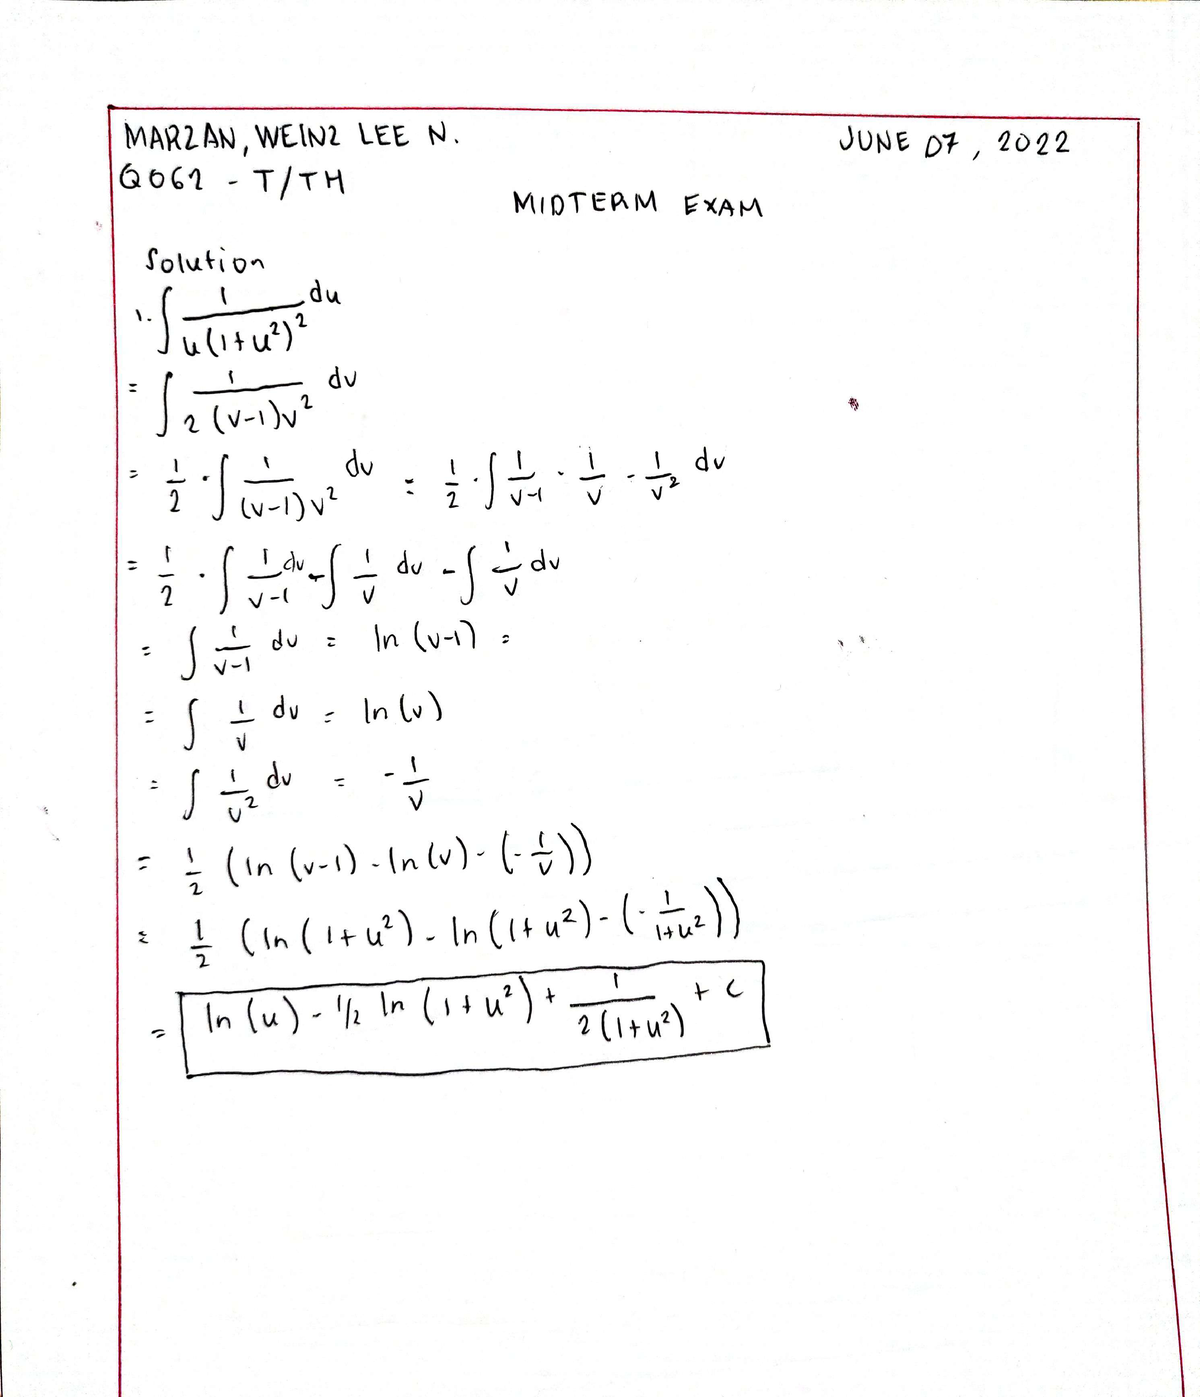 MARZAN, WEINZ LEE N.
JUNE 07, 2022
Q062 - T/TH
MIDTERM EXAM
Solution
1. ∫ 1/(u(1+u²)²) du
= ∫ 1/(2(v-1)v²) dv
= 1/2 · ∫ 1/((v-1)v²) dv = 1/2 · ∫ 1/(v-1) - 1/v - 1/v² dv
= 1/2 · ∫ 1/(v-1) dv - ∫ 1/v dv - ∫ 1/v dv
= ∫ 1/(v-1) dv = ln (v-1) =
= ∫ 1/v dv = ln (v)
= ∫ 1/v² dv = - 1/v
= 1/2 (ln (v-1) - ln (v) - (- 1/v))
= 1/2 (ln (1+u²) - ln (1+u²) - (- 1/(1+u²)))
= ln (u) - 1/2 ln (1+u²) + 1/(2(1+u²)) + c